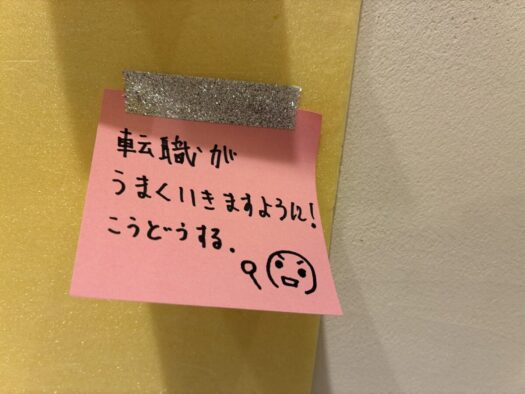 転職が
うまくいきますように!
こうどうする.